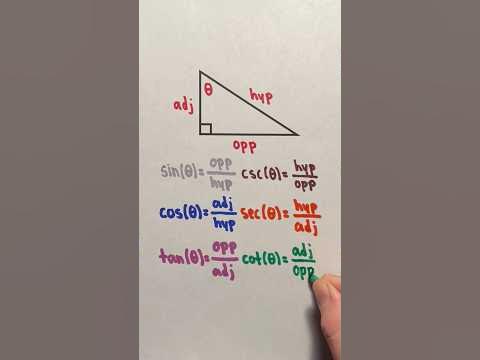 θ
hyp
adj
opp
sin(θ)=opp/hyp csc(θ)=hyp/opp
cos(θ)=adj/hyp sec(θ)=hyp/adj
tan(θ)=opp/adj cot(θ)=adj/opp